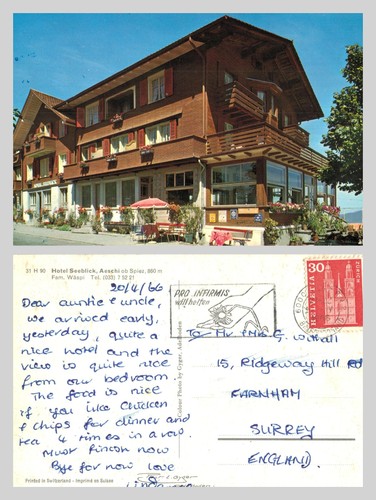 21 H 90 Hotel Seeblick, Aeschi ob Spiez, 860 m
Fam. Wäspi Tel. (033) 7 52 21
20/4/66
Dear auntie & uncle,
we arrived early,
yesterday, quite a
nice hotel and the
view is quite nice
from our bedroom.
The food is nice
if you like chicken
& chips for dinner and
tea 4 times in a row.
Must finish now
Bye for now love
Printed in Switzerland - Imprimé en Suisse
Colour Photo by Gyger, Adelboden
PRO INFIRMIS
will helfen
HELVETIA
30
ZÜRICH
To Mr & Mrs G.
15, Ridgeway Hill Rd
FARNHAM
SURREY
ENGLAND.